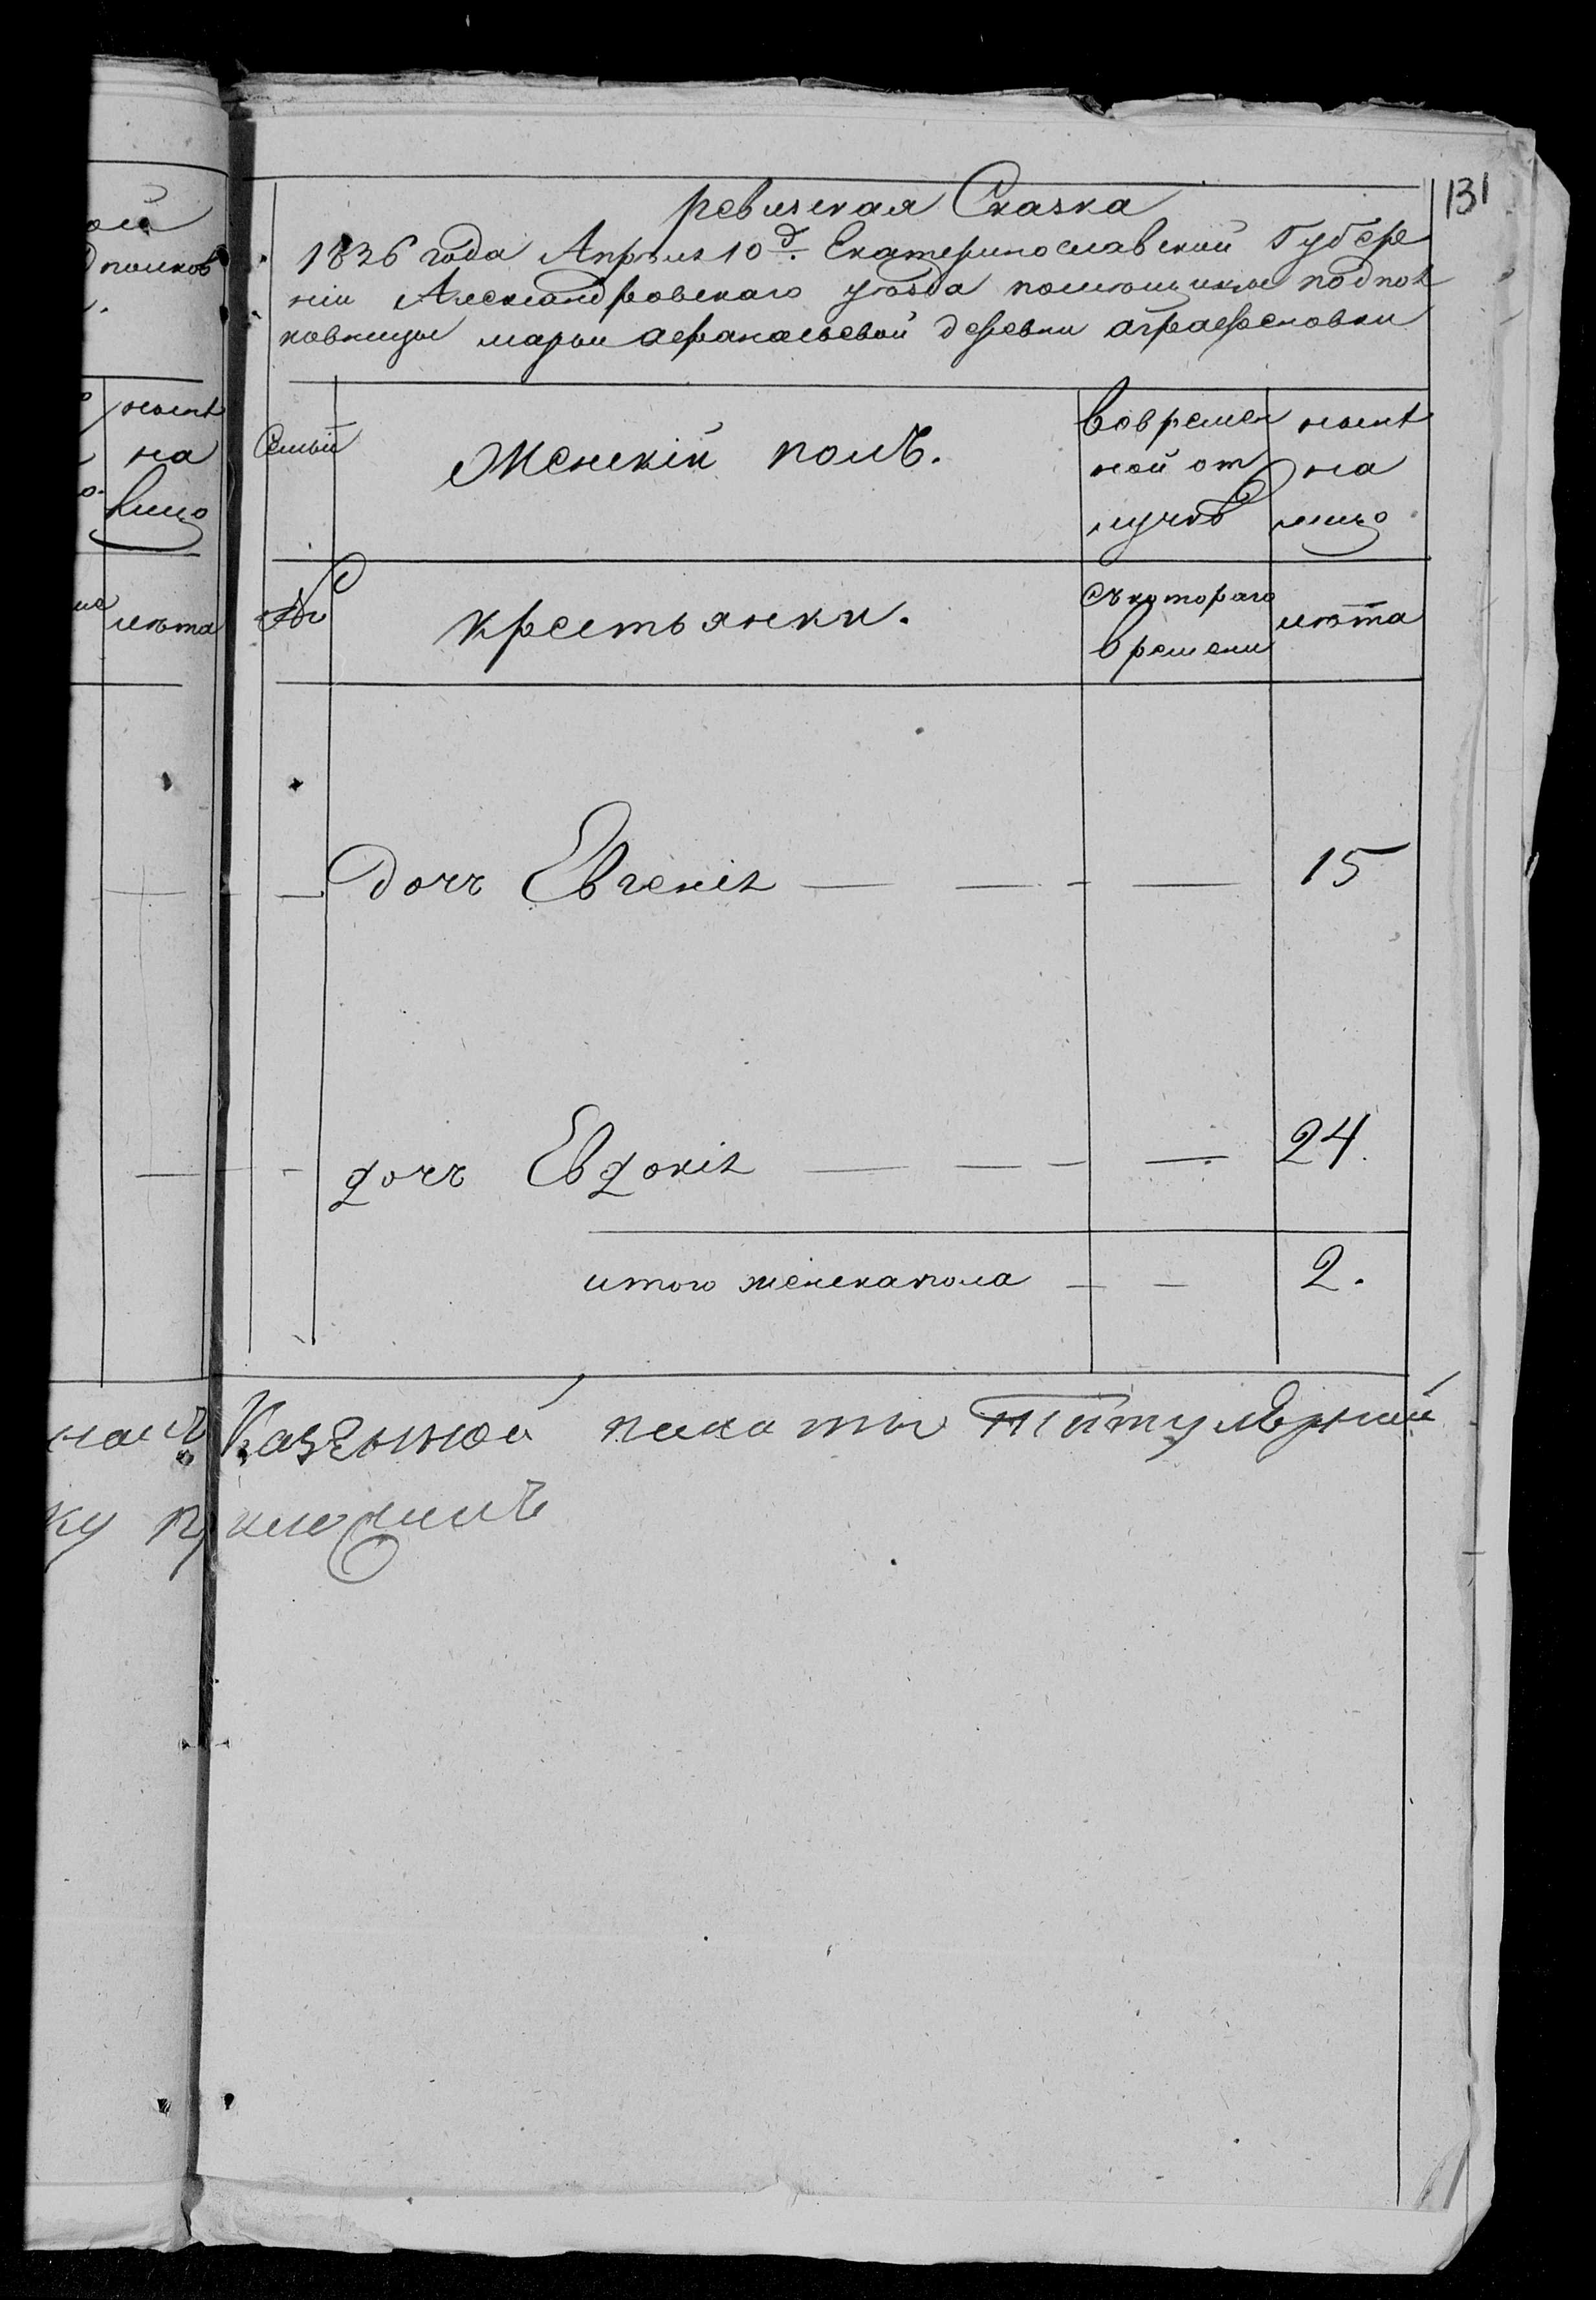 131
ревизская Сказка
1836 года Апреля 10 д. Екатеринославской Губер
нии Александровскаго уѣзда помѣщицы подпол
ковницы марьи афанасьевой деревни аграфеновки
Семьи
Женскій полъ.
вовремен
ной от
лучкѣ
нынѣ
на
лицо
№
крестьянки.
съ котораго
времени
лѣта
дочь Евгенія — — — — 15
дочь Евдокія — — — — 24.
итого женска пола — — 2.
Казенной палаты Титулярный
нынѣ
на
лицо
лѣта